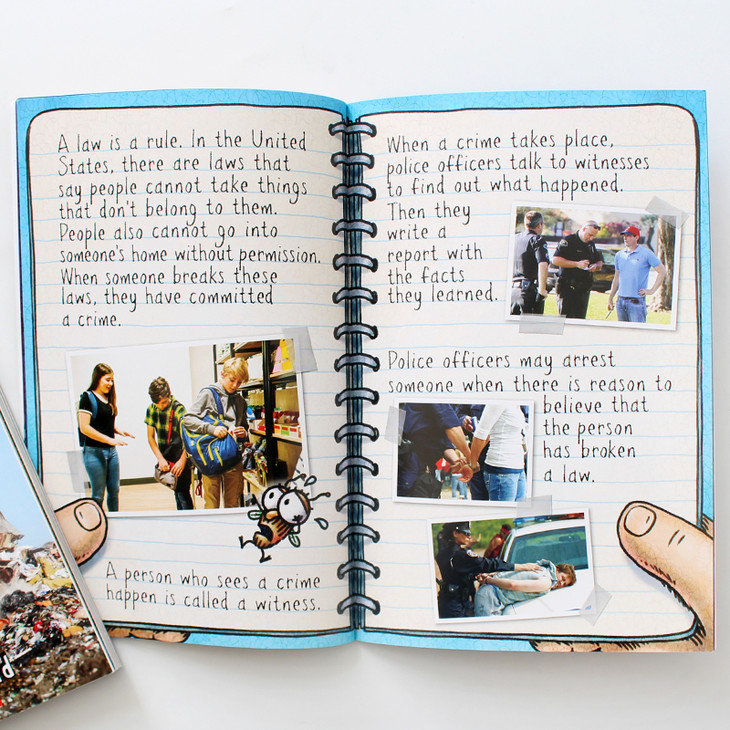 A law is a rule. In the United
States, there are laws that
say people cannot take things
that don't belong to them.
People also cannot go into
someone's home without permission.
When someone breaks these
laws, they have committed
a crime.
A person who sees a crime
happen is called a witness.
When a crime takes place,
police officers talk to witnesses
to find out what happened.
Then they
write a
report with
the facts
they learned.
Police officers may arrest
someone when there is reason to
believe that
the person
has broken
a law.